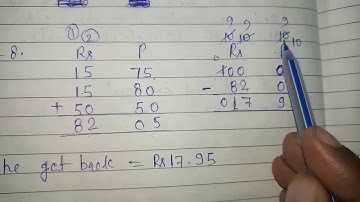 ① ② 9 9 9
8. Rs P 10 10 10 10
Rs
15 75 100 0
15 80 - 82 0
+ 50 50 017 9
82 05
he get back = Rs17.95